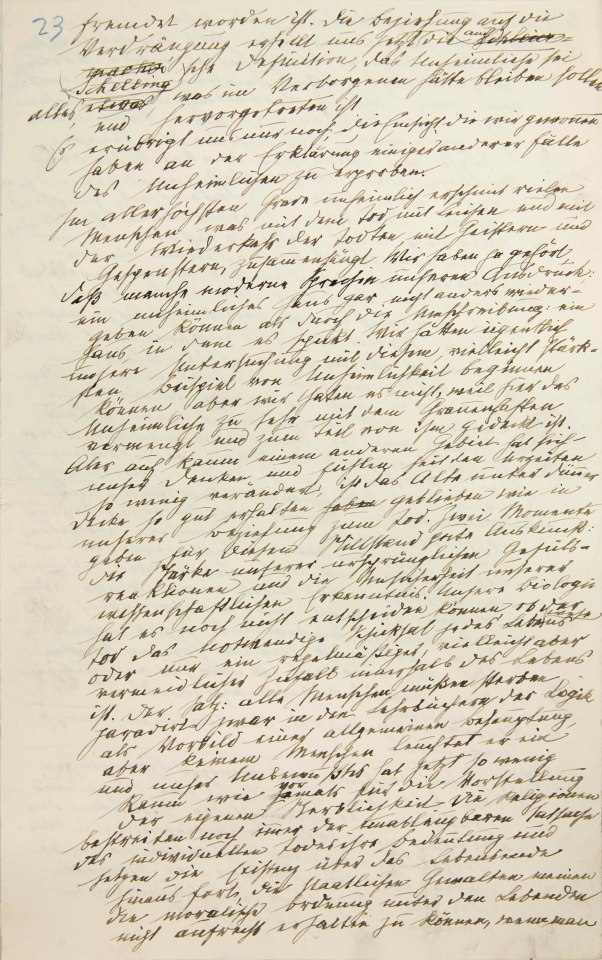 23
fremdet worden ist. Die Beziehung auf die
Verdrängung erhellt uns jetzt die auch
Schelling'sche Definition, das Unheimliche sei
alles etwas, was im Verborgenen hätte bleiben sollen
und hervorgetreten ist
Es erübrigt uns nur noch, die Einsicht die wir gewonnen
haben an der Erklärung einiger anderer Fälle
des Unheimlichen zu erproben.
Im allerhöchsten Grade unheimlich erscheint vielen
Menschen was mit dem Tod, mit Leichen und mit
der Wiederkehr der Todten, mit Geistern und
Gespenstern, zusammenhängt. Wir haben ja gehört,
daß manche moderne Sprachen unseren Ausdruck:
ein unheimliches Haus gar nicht anders wieder-
geben können als durch die Umschreibung: ein
Haus in dem es spukt. Wir hätten eigentlich
unsere Untersuchung mit diesem, vielleicht stärk-
sten Beispiel von Unheimlichkeit beginnen
können aber wir thaten es nicht, weil hier das
Unheimliche zu sehr mit dem Grauenhaften
vermengt und zum Teil von ihm gedeckt ist.
Aber auf kaum einem anderen Gebiet hat sich
unser Denken und Fühlen seit den Urzeiten
so wenig verändert, ist das Alte unter dünner
Decke so gut erhalten geblieben wie in
unserer Beziehung zum Tod. Zwei Momente
geben für diesen Stillstand gute Auskunft:
die Stärke unserer ursprünglichen Gefühls-
reaktionen und die Unsicherheit unserer
wissenschaftlichen Erkenntnis. Unsere Biologie
hat es noch nicht entscheiden können ob der
Tod das notwendige Schicksal jedes Lebewesens
oder nur ein regelmäßiger, vielleicht aber
vermeidlicher Zufall innerhalb des Lebens
ist. Der Satz: alle Menschen müßen sterben,
paradirt zwar in den Lehrbüchern der Logik
als Vorbild einer allgemeinen Behauptung,
aber keinem Menschen leuchtet er ein
und unser Unbewußtes hat jetzt so wenig
Raum wie vormals für die Vorstellung
der eigenen Sterblichkeit. Die Religionen
bestreiten noch immer der unableugbaren Tatsache
des individuellen Todes ihre Bedeutung und
setzen die Existenz über das Lebensende
hinaus fort, die staatlichen Gewalten meinen
die moralische Ordnung unter den Lebenden
nicht aufrecht erhalten zu können, wenn man